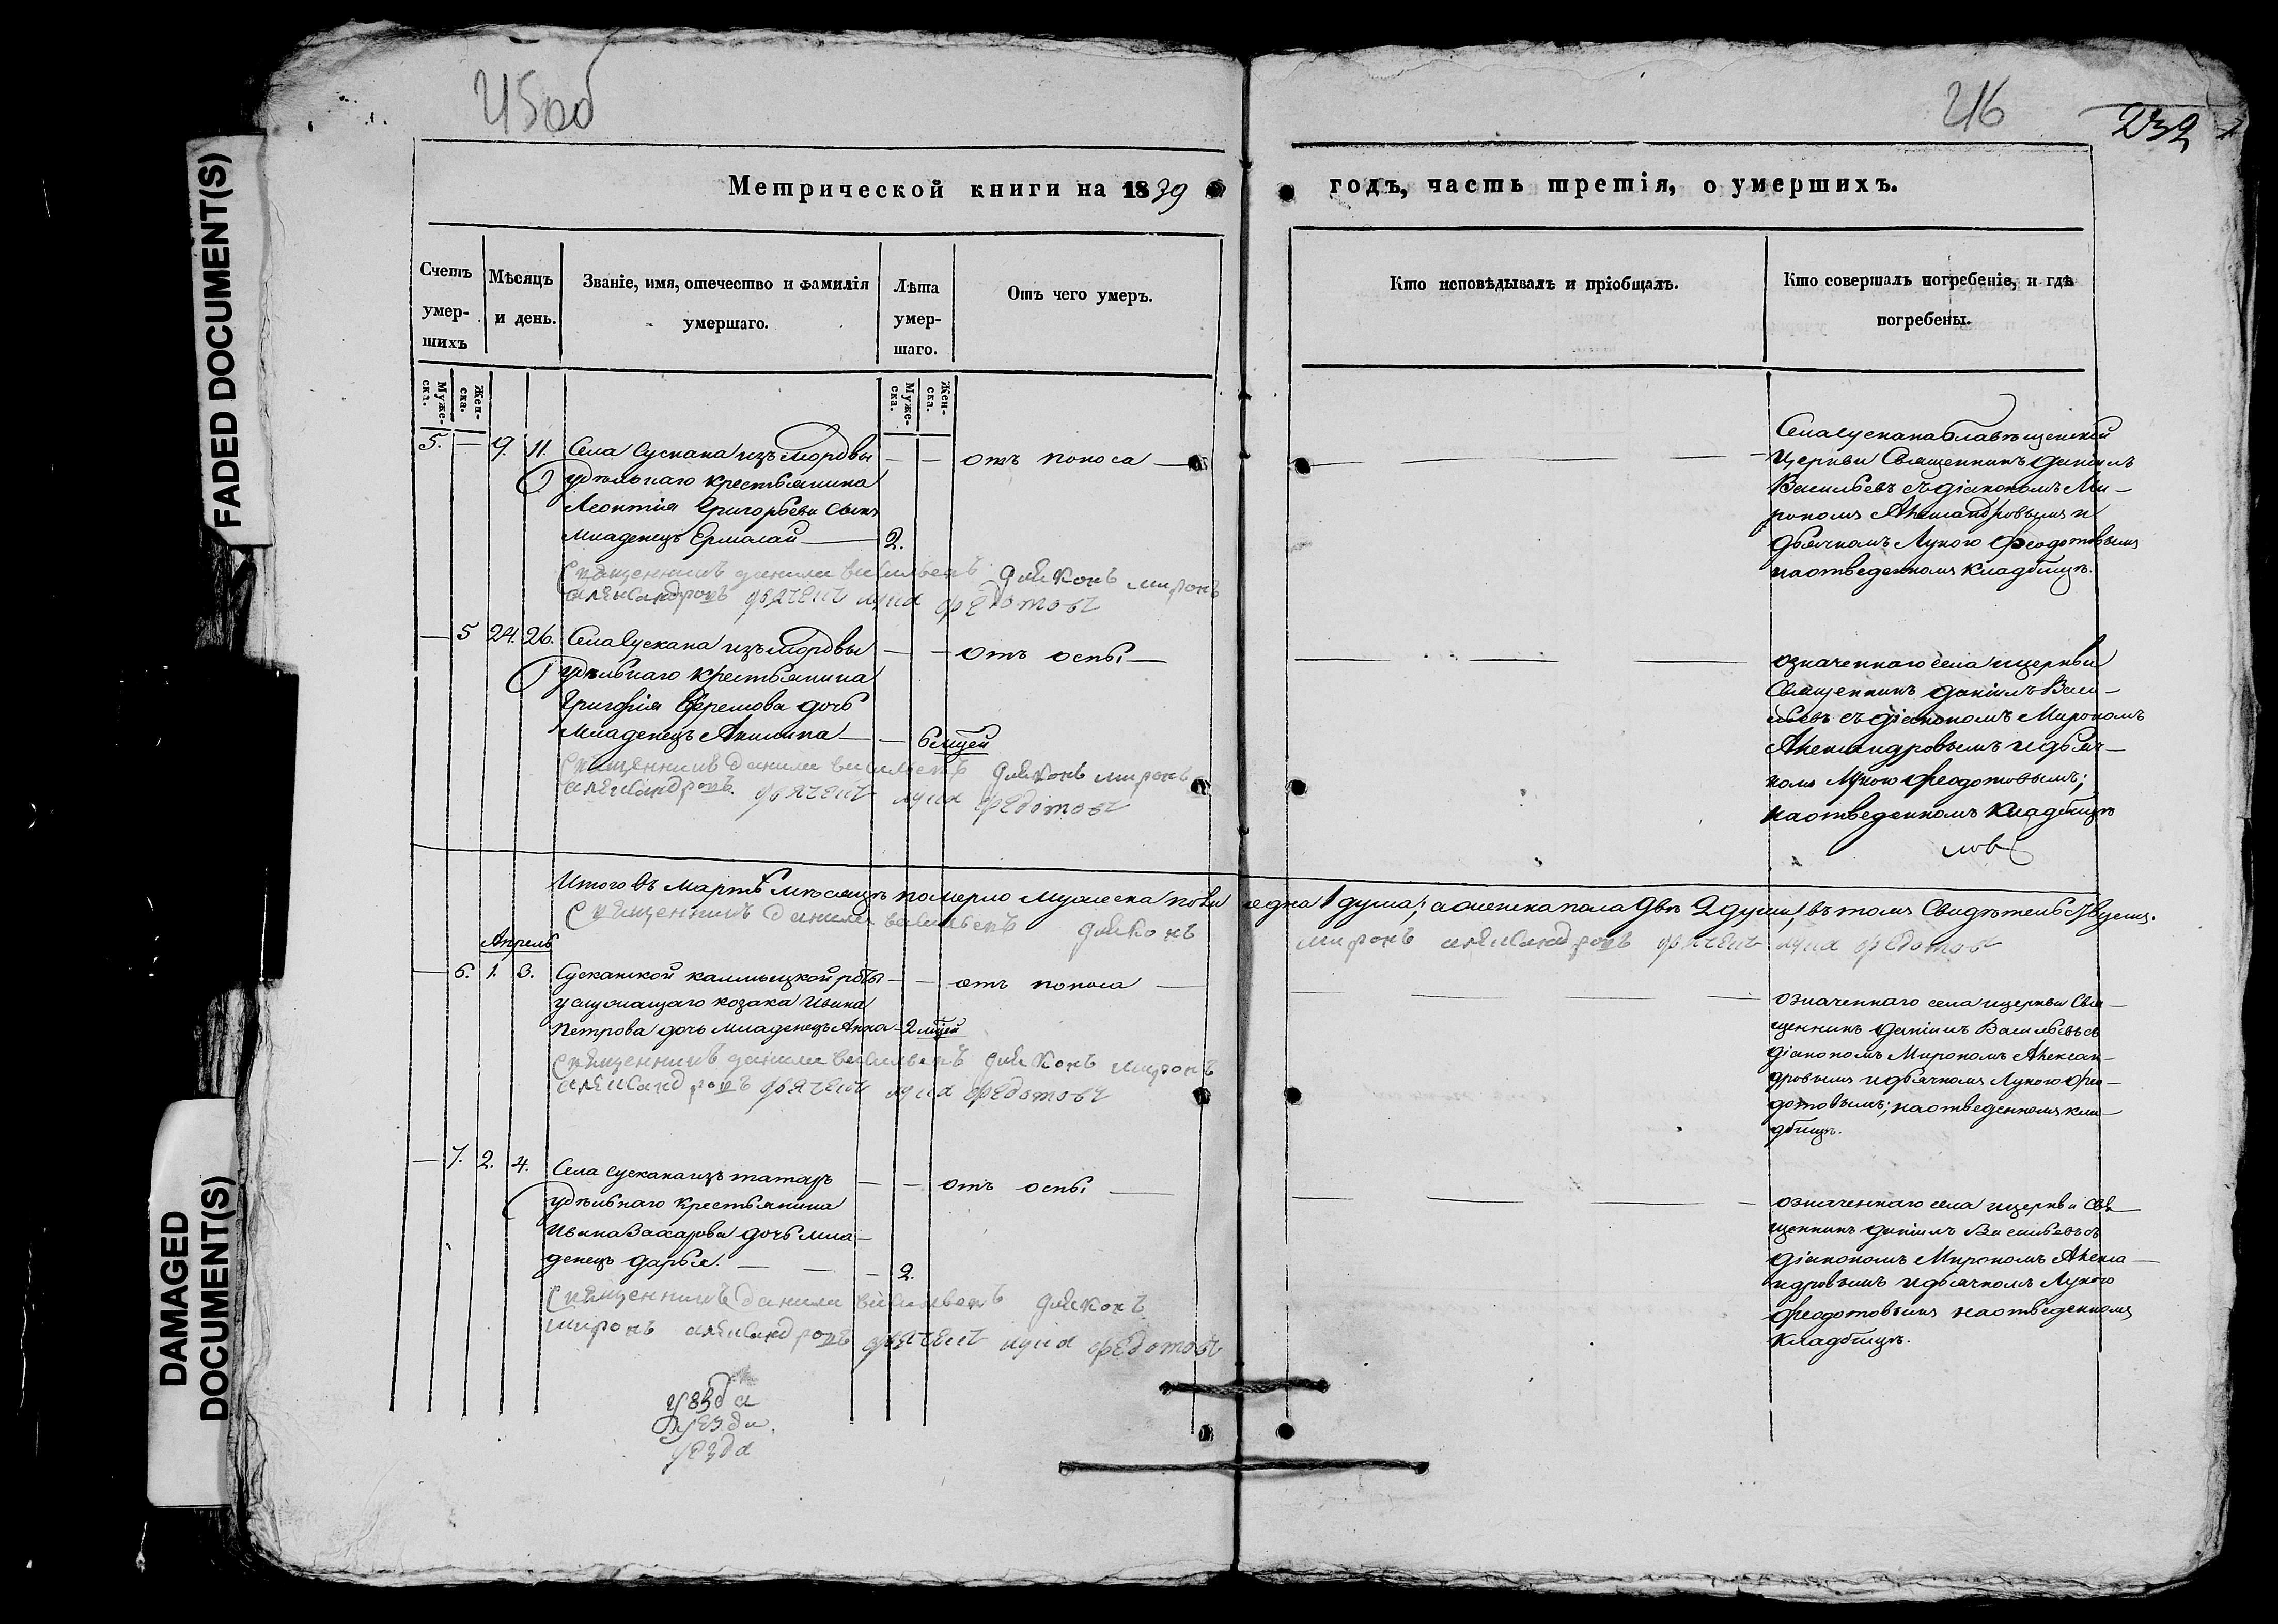 FADED DOCUMENT(S)
DAMAGED
DOCUMENT(S)
215об
216
232
Метрической книги на 1839
годъ, часть третія, о умершихъ.
Счетъ умер-шихъ
Мѣсяцъ и день.
Званіе, имя, отечество и фамилія
умершаго.
Лѣта умер-шаго.
Отъ чего умеръ.
Кто исповѣдывалъ и пріобщалъ.
Кто совершалъ погребеніе, и гдѣ
погребены.
Муже-ска.
Жен-ска.
Муже-ска.
Жен-ска.
5. — 9. 11. Села Сускана изъ мордвы — — отъ поноса —
удѣльнаго крестьянина
Леонтія Григорьева сынъ
младенецъ Ермолай — 2.
Села Сускана благовѣщенской
церкви Священникъ Даніилъ
Васильевъ съ діакономъ Ми-
рономъ Александровымъ и
дьячкомъ Лукою Феодотовымъ
на отведенномъ кладбищѣ.
священникъ данила васильевъ дияконъ миронъ
александровъ дьячекъ лука федотовъ
— 5 24. 26. Села Сускана изъ мордвы — — отъ оспы —
удѣльнаго крестьянина
Ефремова дочь
младенецъ Акилина — — 6 мцей
означеннаго села и церкви
Священникъ Даніилъ Васи-
льевъ съ діакономъ Мирономъ
Александровымъ и дьяч-
комъ Лукою Феодотовымъ;
на отведенномъ кладбищѣ
священникъ данила васильевъ дияконъ миронъ
александровъ дьячекъ лука федотовъ
Итого въ мартѣ мѣсяцѣ померло мужеска пола една 1 душа; а женска пола двѣ 2 души, въ томъ свидѣтельствуемъ.
священникъ данила васильевъ дияконъ миронъ александровъ дьячекъ лука федотовъ
Апрель
— 6. 1. 3. Сусканской калмыцкой роты — — отъ поноса —
услужащаго козака Ивана
Петрова дочь младенецъ Анна — 2 мцей
означеннаго села и церкви Свя-
щенникъ Даніилъ Васильевъ съ
діакономъ Мирономъ Алексан-
дровымъ и дьячкомъ Лукою Фео-
дотовымъ; на отведенномъ кла-
дбищѣ.
священникъ данила васильевъ дияконъ миронъ
александровъ дьячекъ лука федотовъ
— 7. 2. 4. Села Сускана изъ татаръ — — отъ оспы —
удѣльнаго крестьянина
Ивана Захарова дочь мла-
денецъ Дарья. — — — 2.
означеннаго села и церкви Свя-
щенникъ Даніилъ Васильевъ съ
діакономъ Мирономъ Алекса-
ндровымъ и дьячкомъ Лукою
Феодотовымъ на отведенномъ
кладбищѣ.
священникъ данила васильевъ дияконъ
миронъ александровъ дьячекъ лука федотовъ
уезда
уезда